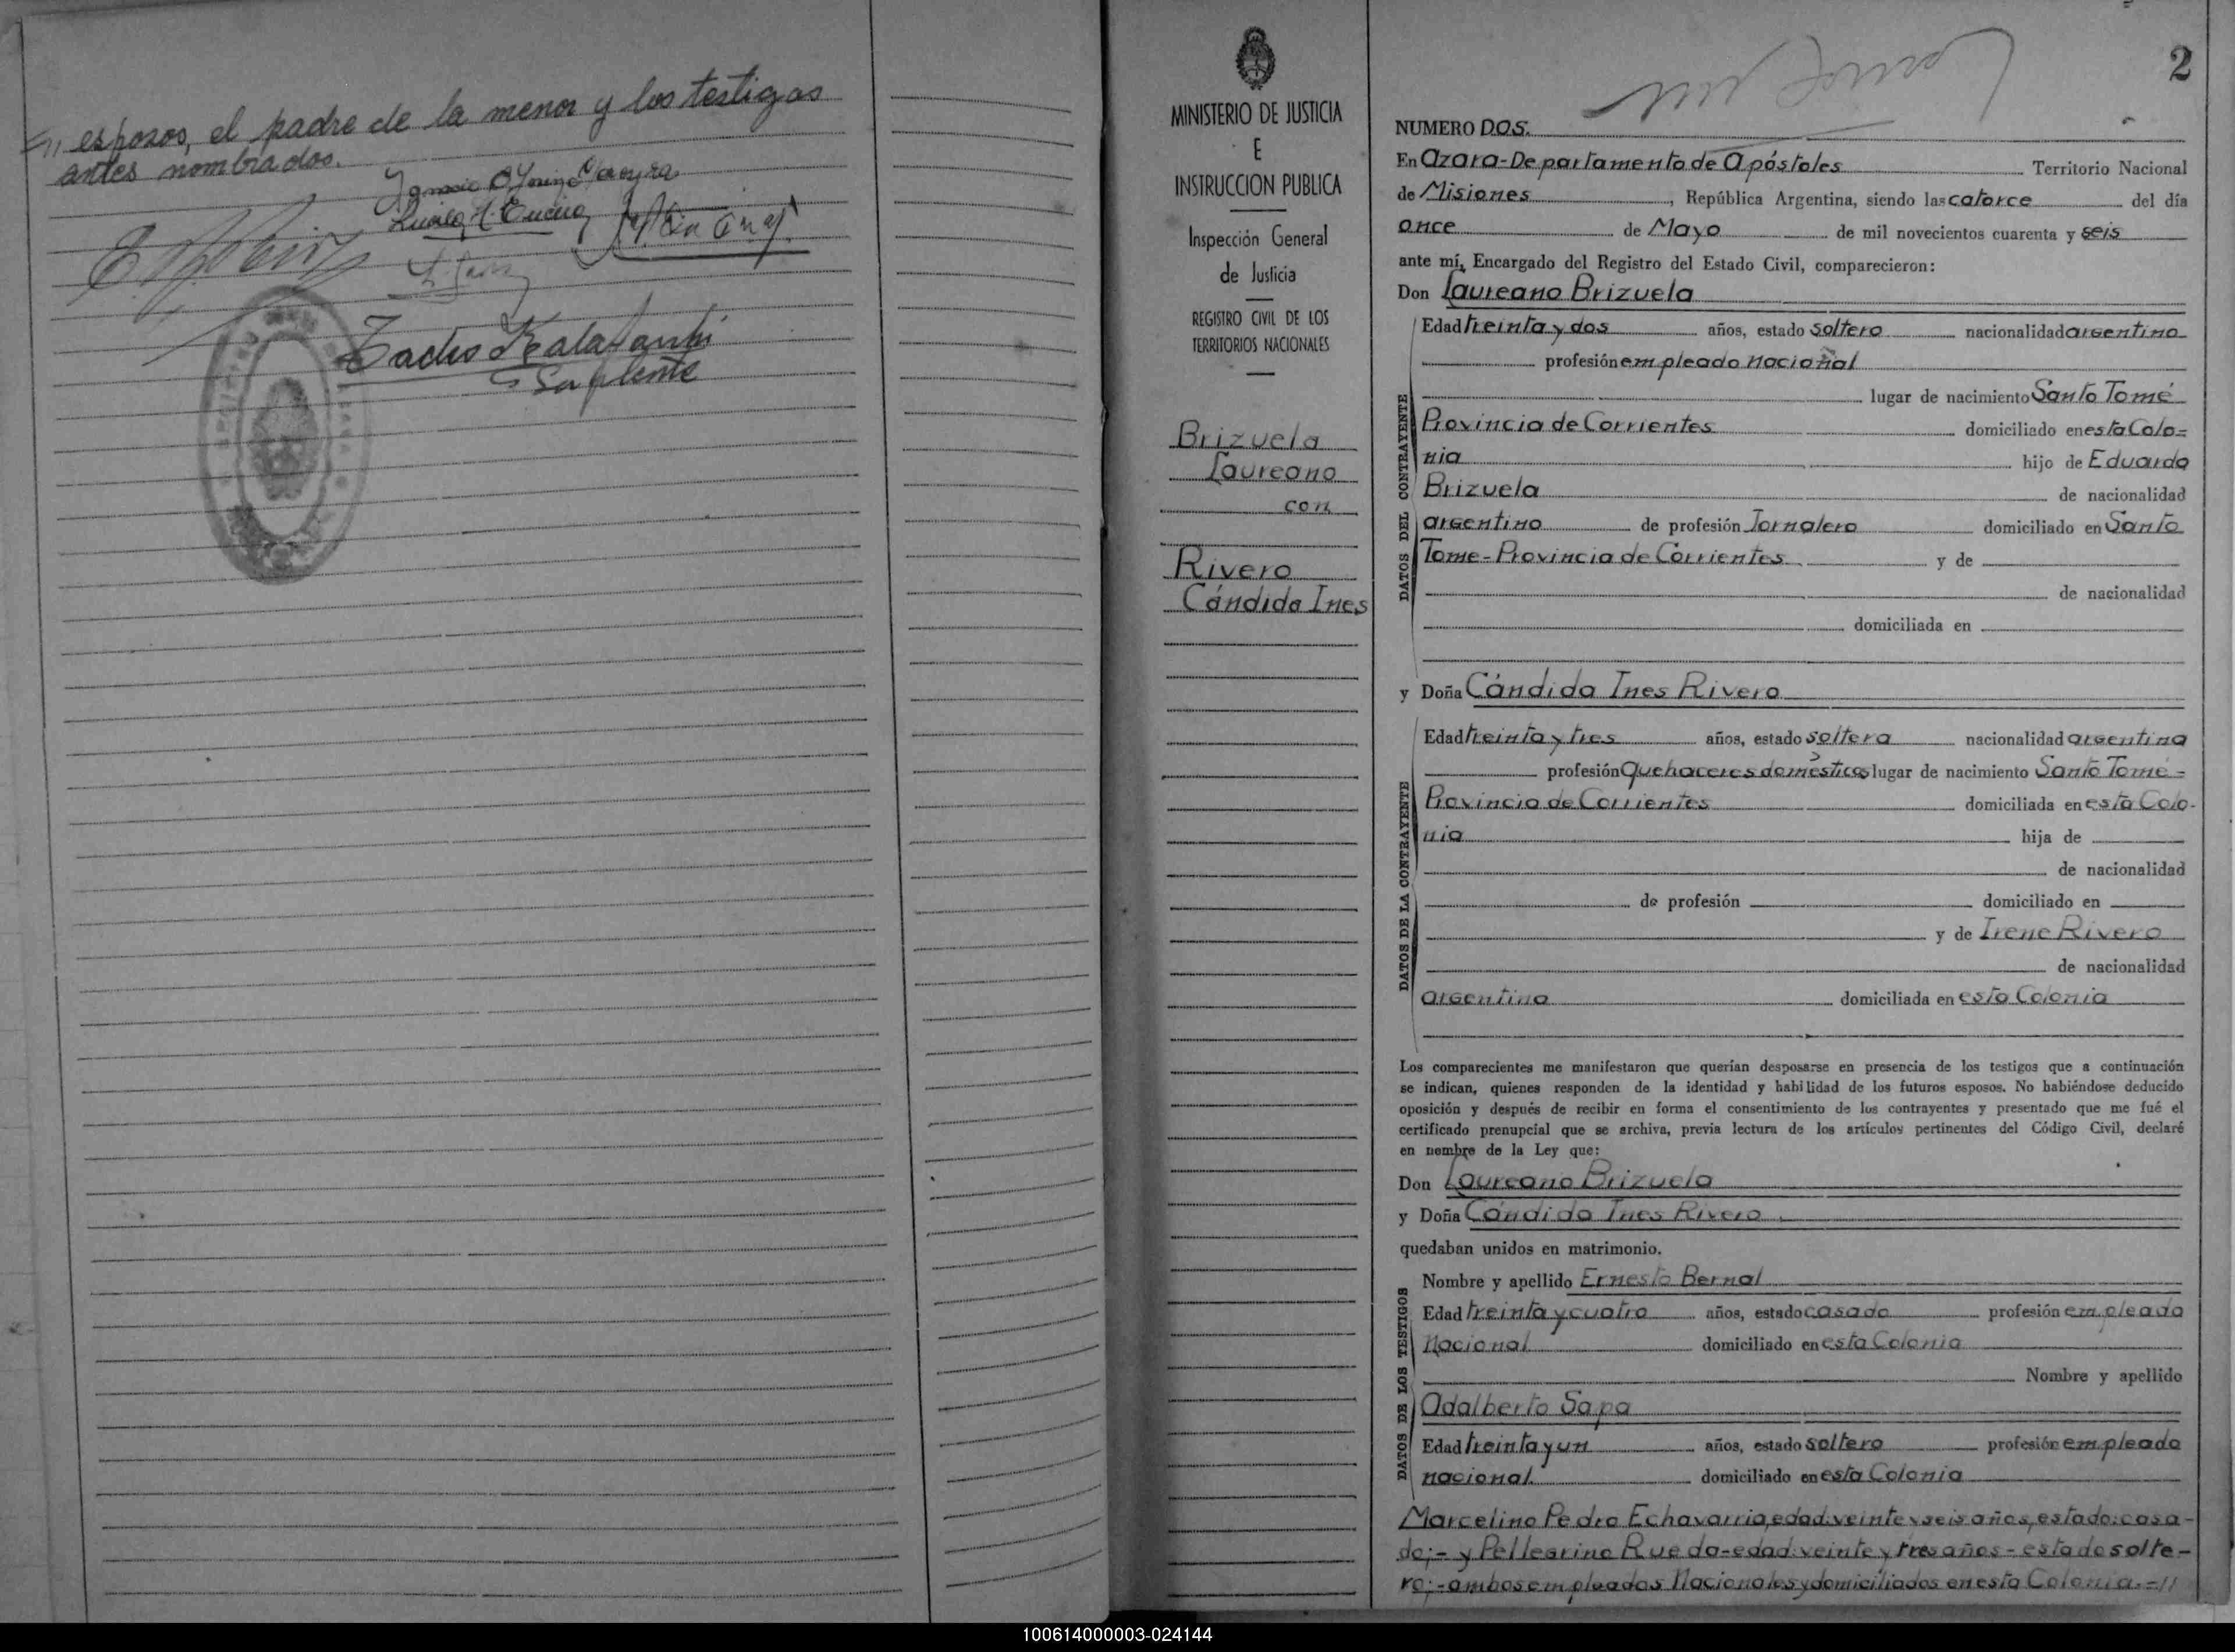 esposos, el padre de la menor y los testigos
antes nombrados.
Suplente
MINISTERIO DE JUSTICIA
E
INSTRUCCION PUBLICA
Inspección General
de Justicia
REGISTRO CIVIL DE LOS
TERRITORIOS NACIONALES
Brizuela
Laureano
con
Rivero
Cándida Ines
2
NUMERO DOS.
En Azara-Departamento de Apóstoles Territorio Nacional
de Misiones, República Argentina, siendo las catorce del día
once de Mayo de mil novecientos cuarenta y seis
ante mí, Encargado del Registro del Estado Civil, comparecieron:
Don Laureano Brizuela
DATOS DEL CONTRAYENTE
Edad treinta y dos años, estado soltero nacionalidad argentino
profesión empleado nacional
lugar de nacimiento Santo Tomé
Provincia de Corrientes domiciliado en esta Colo=
nia hijo de Eduardo
Brizuela de nacionalidad
argentino de profesión Jornalero domiciliado en Santo
Tome-Provincia de Corrientes y de
de nacionalidad
domiciliada en
y Doña Cándida Ines Rivero
DATOS DE LA CONTRAYENTE
Edad treinta y tres años, estado soltera nacionalidad argentina
profesión Quehaceres domésticos lugar de nacimiento Santo Tomé=
Provincia de Corrientes domiciliada en esta Colo-
nia hija de
de nacionalidad
de profesión domiciliado en
y de Irene Rivero
de nacionalidad
argentina domiciliada en esta Colonia
Los comparecientes me manifestaron que querían desposarse en presencia de los testigos que a continuación
se indican, quienes responden de la identidad y habilidad de los futuros esposos. No habiéndose deducido
oposición y después de recibir en forma el consentimiento de los contrayentes y presentado que me fué el
certificado prenupcial que se archiva, previa lectura de los artículos pertinentes del Código Civil, declaré
en nombre de la Ley que:
Don Laureano Brizuela
y Doña Cándida Ines Rivero
quedaban unidos en matrimonio.
DATOS DE LOS TESTIGOS
Nombre y apellido Ernesto Bernal
Edad treinta y cuatro años, estado casado profesión empleado
Nacional domiciliado en esta Colonia
Nombre y apellido
Adalberto Sapa
Edad treinta y un años, estado soltero profesión empleado
nacional domiciliado en esta Colonia
Marcelino Pedro Echavarria, edad: veinte y seis años, estado: casa-
do;- y Pellegrino Rueda-edad: veinte y tres años-estado solte-
ro;-ambos empleados Nacionales y domiciliados en esta Colonia.=//
100614000003-024144